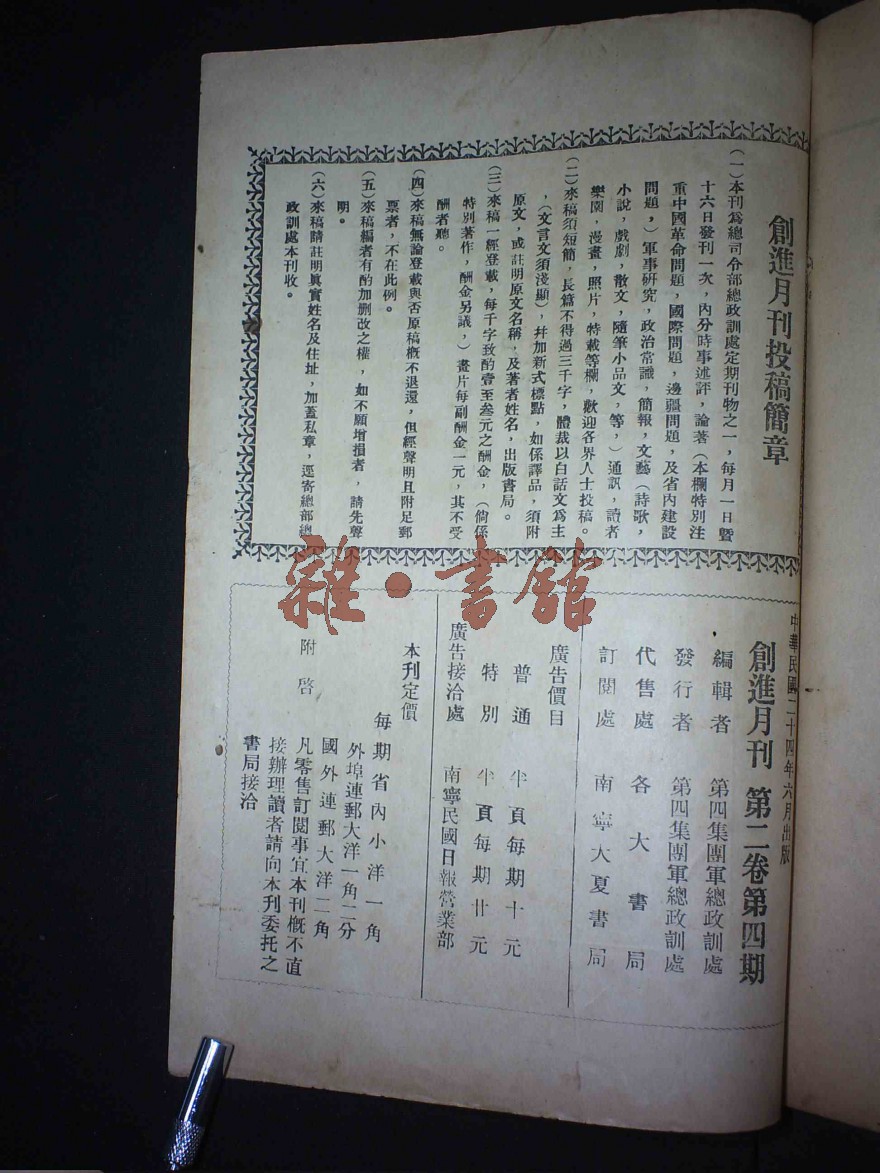 創進月刊投稿簡章
(一)本刊爲總司令部總政訓處定期刊物之一,每月一日暨
十六日發刊一次,內分時事述評,論著(本欄特別注
重中國革命問題,國際問題,邊疆問題,及省內建設
問題,)軍事研究,政治常識,簡報,文藝(詩歌,
小說,戲劇,散文,隨筆小品文,等,)通訊,讀者
樂園,漫畫,照片,特載等欄,歡迎各界人士投稿。
(二)來稿須短簡,長篇不得過三千字,體裁以白話文爲主
,(文言文須淺顯),幷加新式標點,如係譯品,須附
原文,或註明原文名稱,及著者姓名,出版書局。
(三)來稿一經登載,每千字致酌壹至叁元之酬金,(倘係
特別著作,酬金另議,)畫片每副酬金一元,其不受
酬者聽。
(四)來稿無論登載與否原稿槪不退還,但經聲明且附足郵
票者,不在此例。
(五)來稿編者有酌加刪改之權,如不願增損者,請先聲
明。
(六)來稿請註明眞實姓名及住址,加蓋私章,逕寄總部總
政訓處本刊收。
中華民國二十四年六月出版
創進月刊 第二卷第四期
編輯者 第四集團軍總政訓處
發行者 第四集團軍總政訓處
代售處 各大書局
訂閱處 南寧大夏書局
廣告價目
普通 半頁每期十元
特別 半頁每期廿元
廣告接洽處 南寧民國日報營業部
本刊定價
每期省內小洋一角
外埠連郵大洋一角二分
國外連郵大洋二角
附啓
凡零售訂閱事宜本刊槪不直
接辦理讀者請向本刋委托之
書局接洽
雜·書館